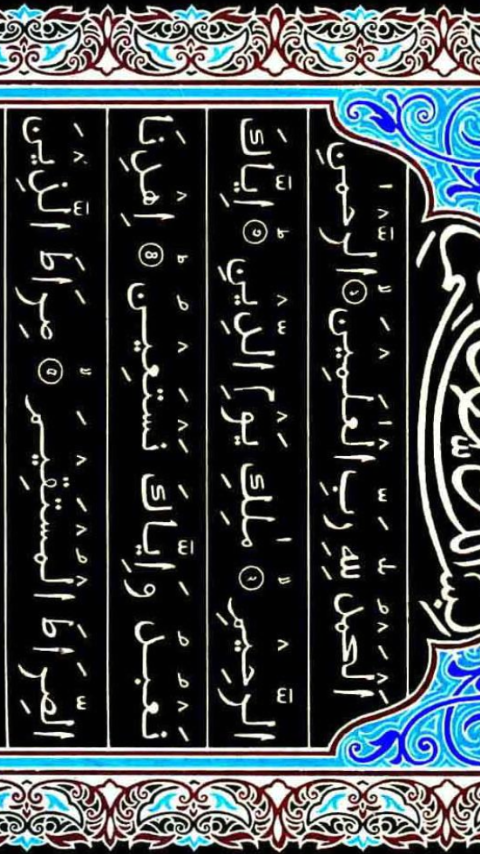 اَلْحَمْدُ لِلّٰهِ رَبِّ الْعٰلَمِيْنَ الرَّحْمٰنِ
الرَّحِيْمِ مٰلِكِ يَوْمِ الدِّيْنِ اِيَّاكَ
نَعْبُدُ وَاِيَّاكَ نَسْتَعِيْنُ اِهْدِنَا
الصِّرَاطَ الْمُسْتَقِيْمَ صِرَاطَ الَّذِيْنَ